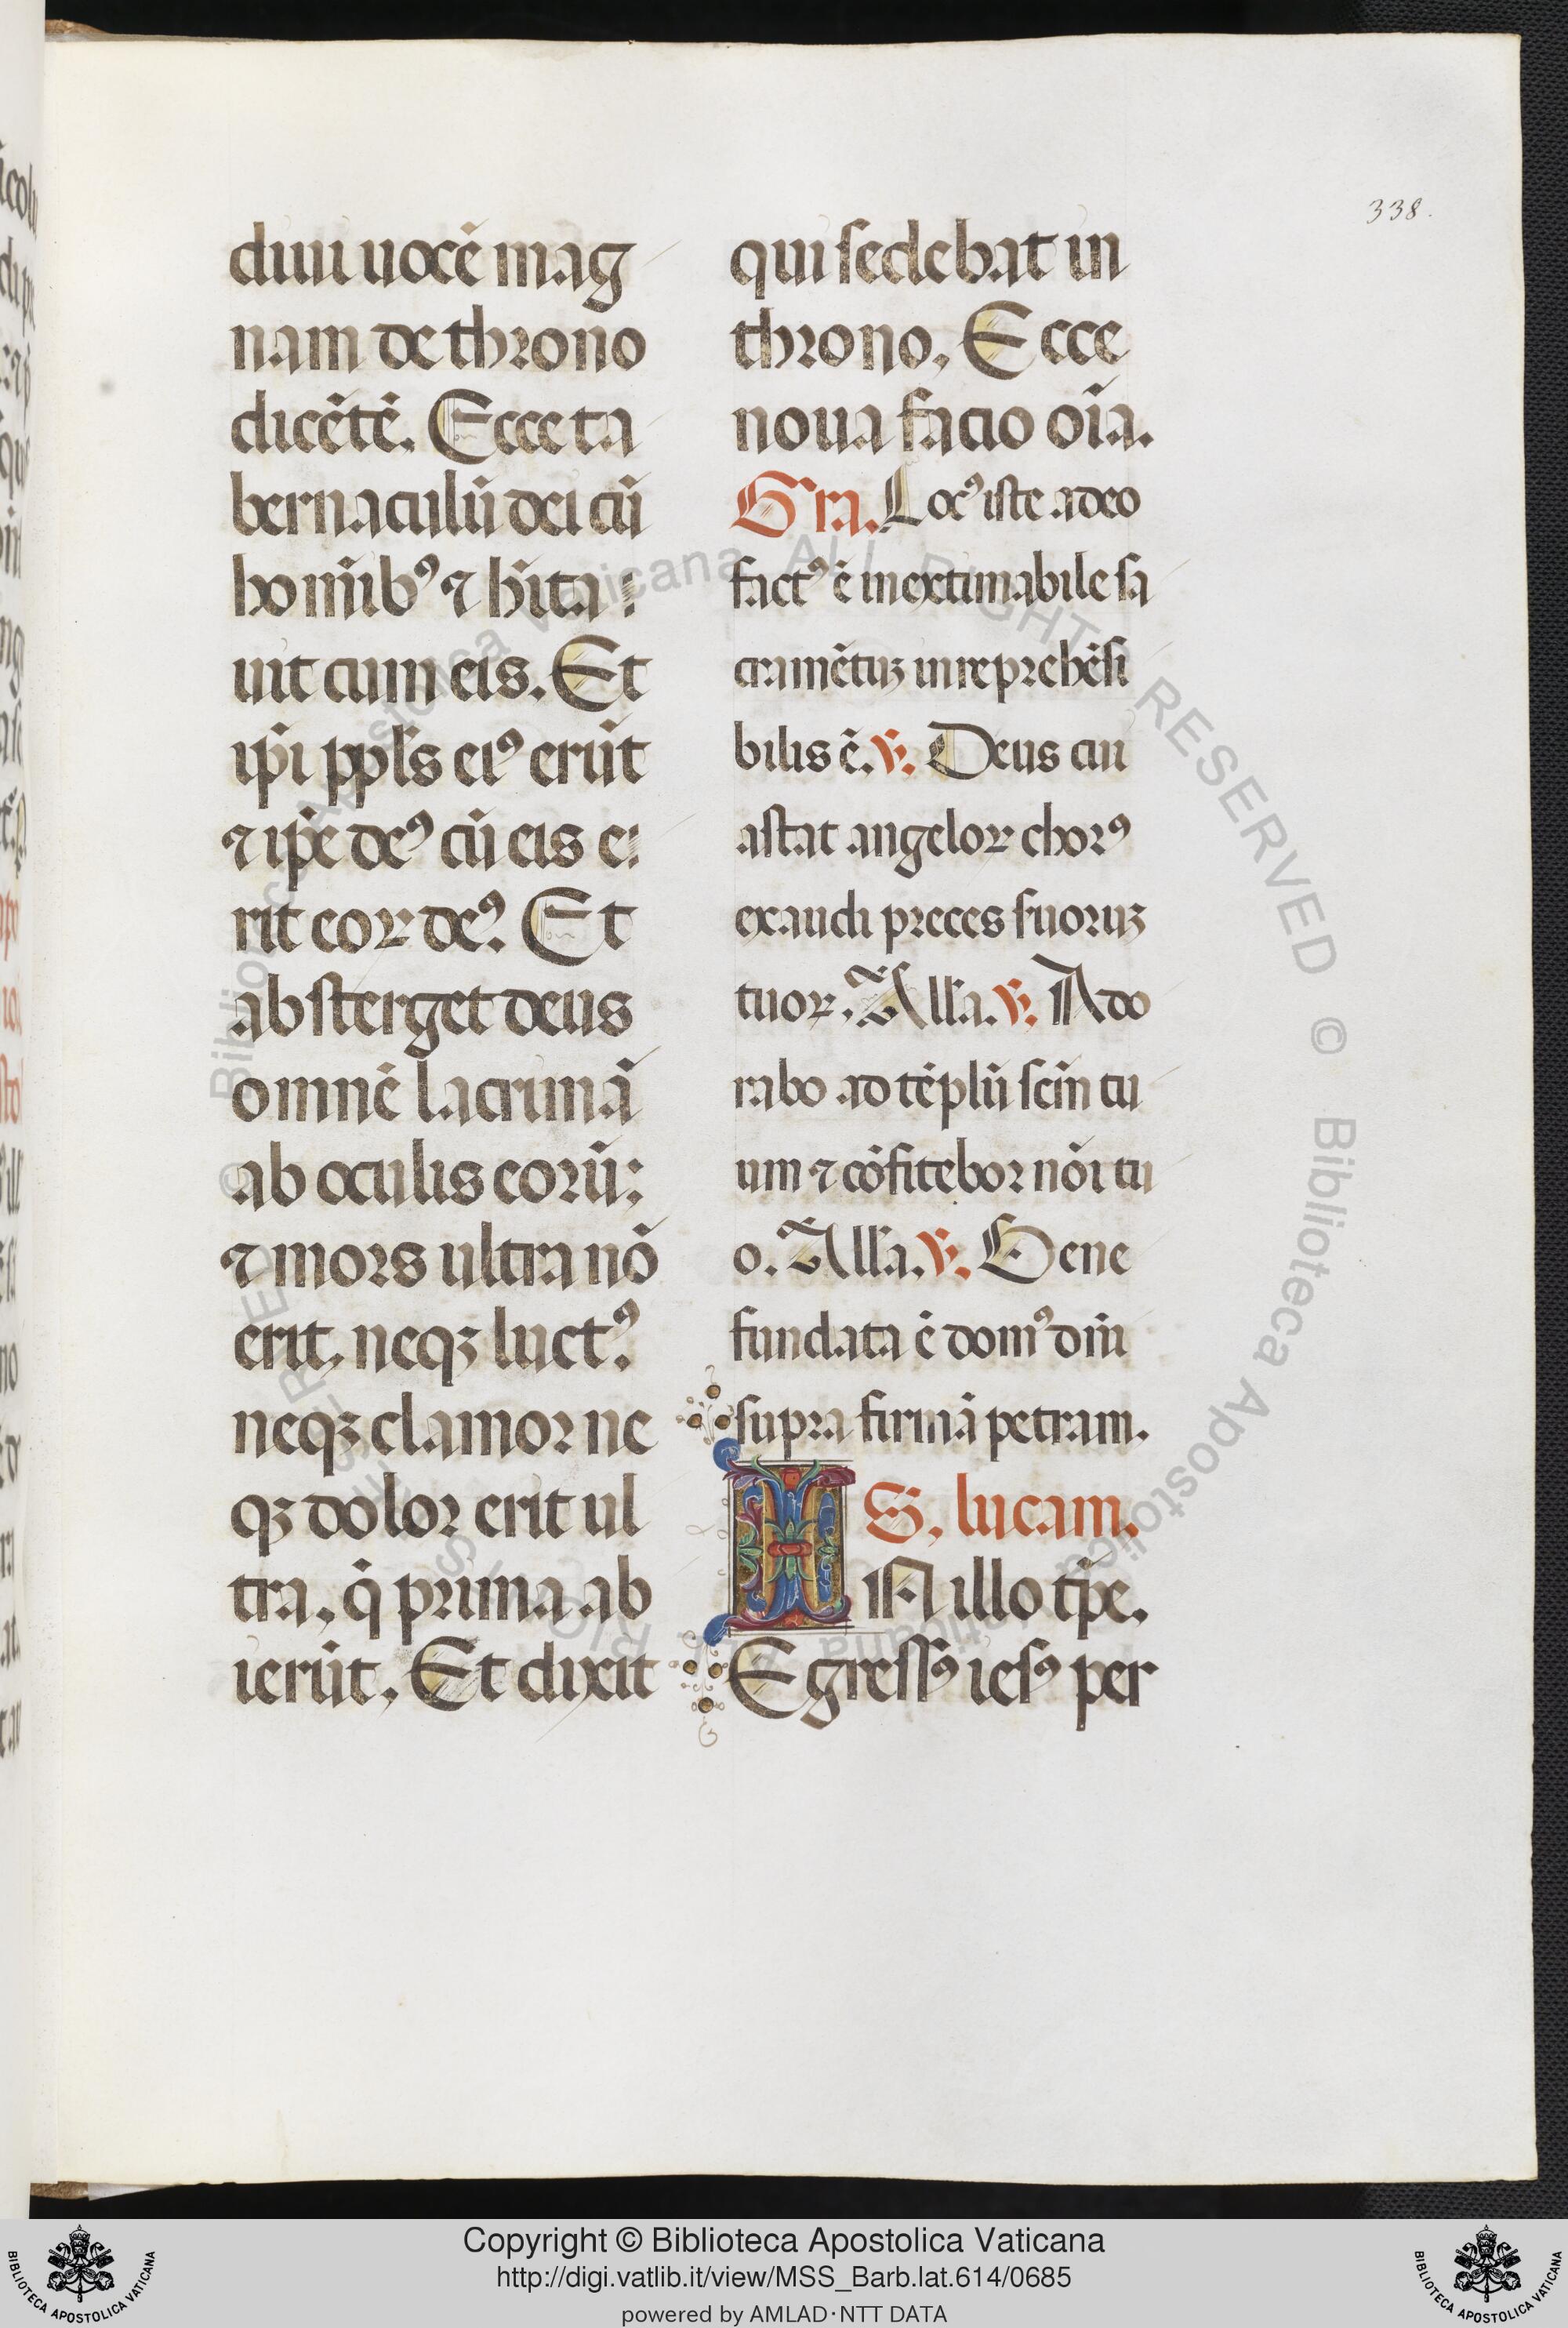 338.
diui uocē mag
nam de throno
dicētē. Ecce ta
bernaculū dei cū
homībꝰ ⁊ hīta:
uit cum eis. Et
ip̄i ppl̄s eiꝰ erūt
⁊ ip̄e deꝰ cū eis e:
rit eoꝝ deꝰ. Et
absterget deus
omnē lacrimā
ab oculis eorū:
⁊ mors ultra nō
erit, neqꝫ luctꝰ.
neqꝫ clamor ne
qꝫ dolor erit ul
tra, q̄ prima ab
ierūt, Et dixit
qui sedebat in
throno, Ecce
noua facio oīa.
Gr̄a. Locꝰ iste a deo
factꝰ ē inextimabile sa
cramētuꝫ inreprehēsi
bilis ē. ℣. Deus cui
astat angeloꝝ chorꝰ
exaudi preces suoruꝫ
tuoꝝ. All̄a. ℣. Ado
rabo ad tēplū scm̄ tu
um ⁊ cōfitebor nōi tu
o. All̄a. ℣. Bene
fundata ē domꝰ dn̄i
supra firmā petram.
S. lucam.
IN illo tp̄e.
Egressꝰ iesꝰ per
© Biblioteca Apostolica Vaticana ALL RIGHTS RESERVED © Biblioteca Apostolica Vaticana ALL RIGHTS RESERVED
BIBLIOTECA APOSTOLICA VATICANA
Copyright © Biblioteca Apostolica Vaticana
http://digi.vatlib.it/view/MSS_Barb.lat.614/0685
powered by AMLAD·NTT DATA
BIBLIOTECA APOSTOLICA VATICANA